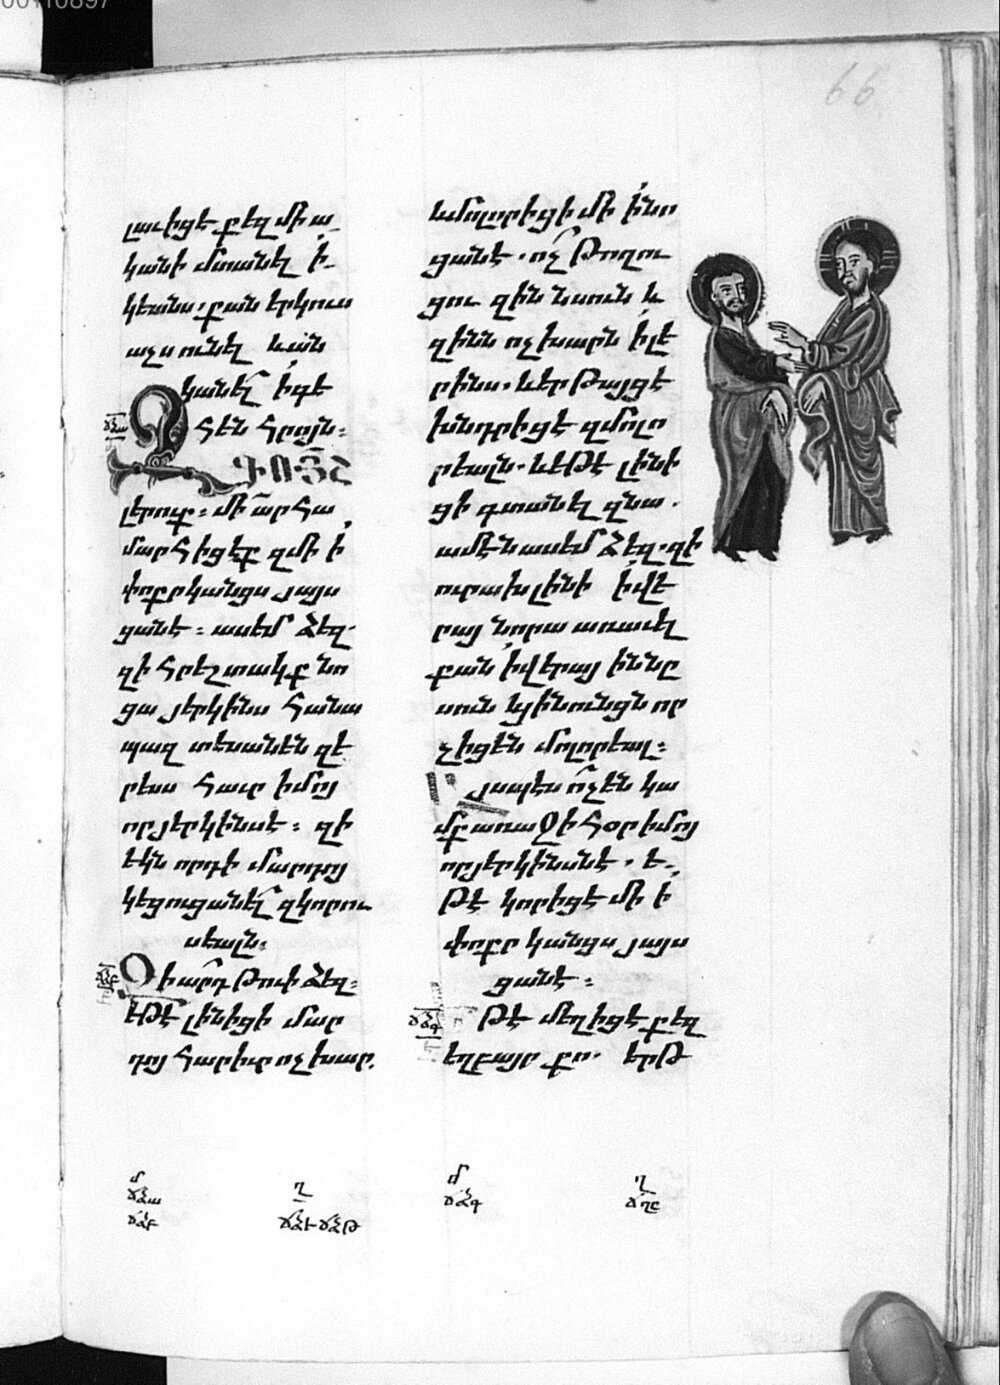 66
լաւիցէ քեզ միա
կանի մտանել ի
կեանս. քան երկուս
աչս ունել և ան
կանել ի գե
հէն հրոյն։
ԶԳՈՅՇ
լերուք։ մի արհա
մարհիցէք զմի ի
փոքրկանցս յայս
ցանէ։ ասեմ ձեզ.
զի հրեշտակք նո
ցա յերկինս հանա
պազ տեսանեն զե
րեսս հաւր իմոյ
որ յերկինսէ։ զի
եկն որդի մարդոյ
կեցուցանել զկորու
սեալն։
Զի արդ թուի ձեզ։
եթէ լինիցի մար
դոյ հարիւր ոչխար.
և մոլորիցի մի ի նո
ցանէ. ոչ թողու
ցու զիննսուն և
զինն ոչխարն ի լե
րինս. և երթայցէ
խնդրիցէ զմոլո
րեալն. և եթէ լինի
ցի գտանել զնա.
ամէն ասեմ ձեզ. զի
ուրախ լինի ի վե
րայ նորա առաւել
քան ի վերայ իննը
սուն և իննունցն որ
չիցեն մոլորեալ։
յսպէս ոչ են կա
մք առաջի հօր իմոյ
որ յերկինսնէ. ե
թէ կորիցէ մի ի
փոքր կանցս յայս
ցանէ։
Թէ մեղիցէ քեզ
եղբայր քո. երթ